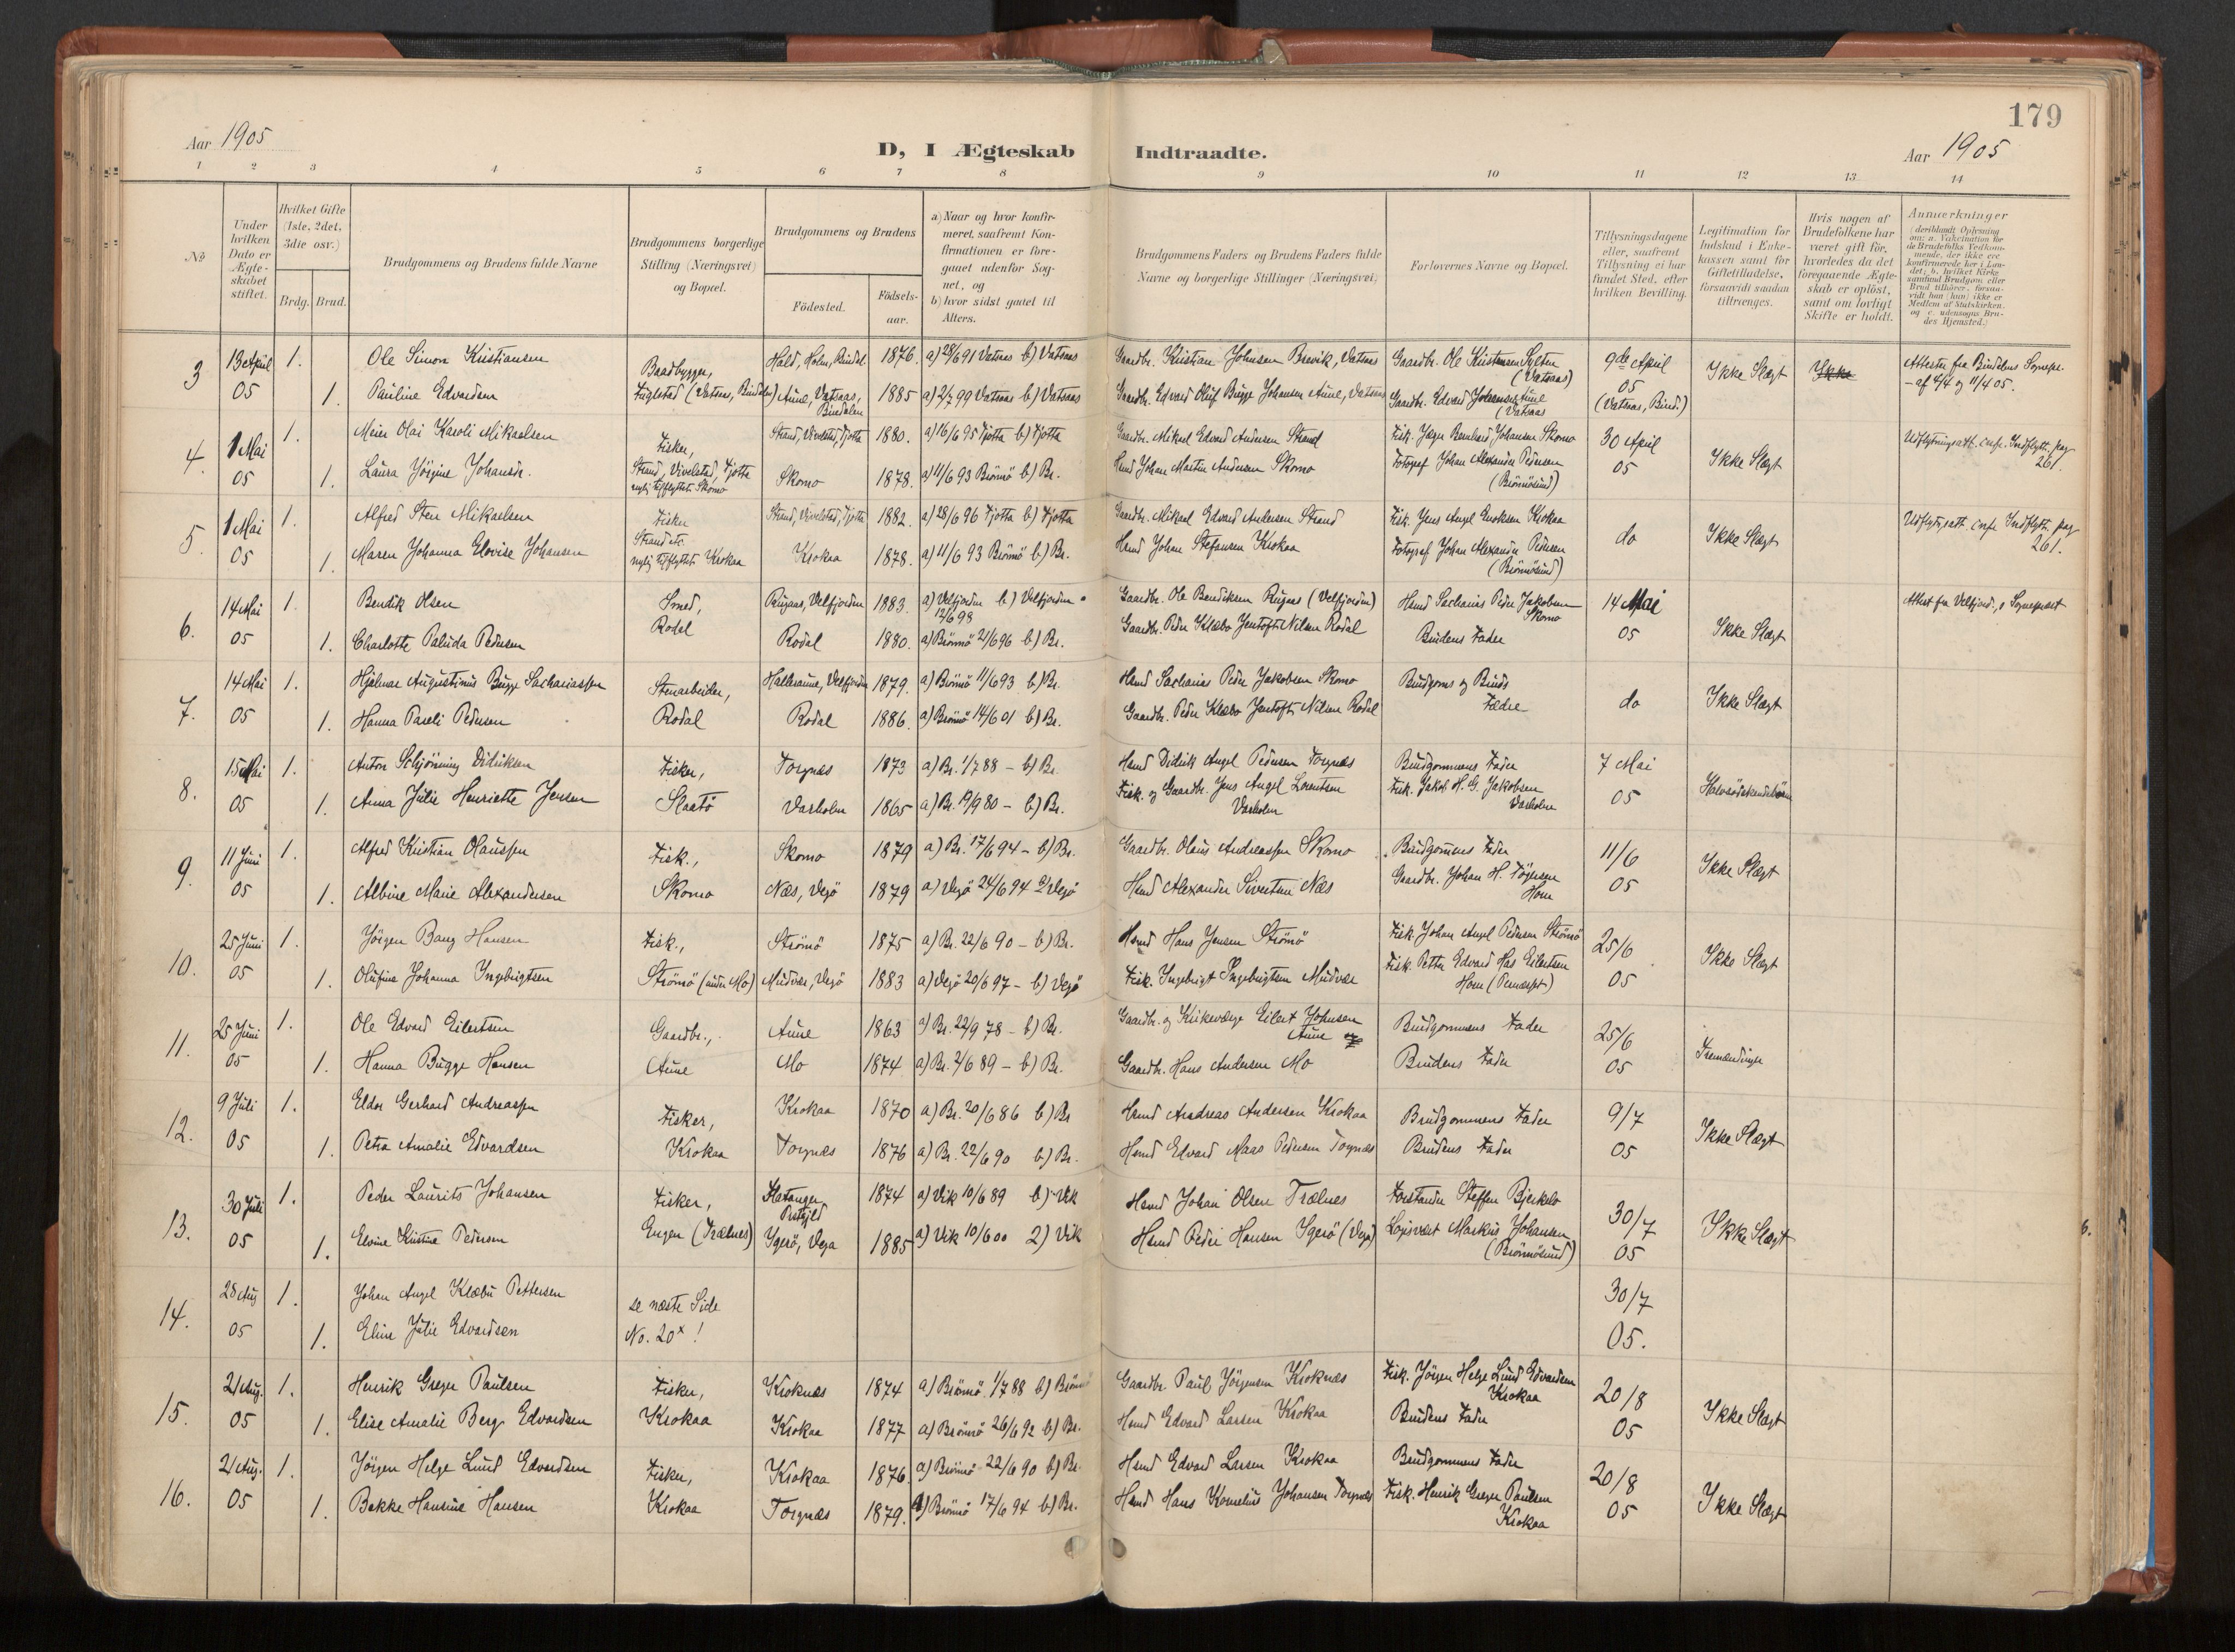 179
Aar 1905
D, I Ægteskab Indtraadte.
Aar 1905
1 2 3 4 5 6 7 8 9 10 11 12 13 14
No
Under hvilken Dato er Ægteskabet stiftet.
Hvilket Gifte (1ste, 2det, 3die osv.)
Brdg. Brud.
Brudgommens og Brudens fulde Navne
Brudgommens borgerlige Stilling (Næringsvei) og Bopæl.
Brudgommens og Brudens
Fødested.
Fødsels-aar.
a) Naar og hvor konfirmeret, saafremt Konfirmationen er foregaaet udenfor Sognet, og
b) hvor sidst gaaet til Alters.
Brudgommens Faders og Brudens Faders fulde Navne og borgerlige Stillinger (Næringsvei)
Forlovernes Navne og Bopæl.
Tillysningsdagene eller, saafremt Tillysning ei har fundet Sted, efter hvilken Bevilling.
Legitimation for Indskud i Enkekassen samt for Giftetilladelse, forsaavidt saadan tiltrænges.
Hvis nogen af Brudefolkene har været gift før, hvorledes da det foregaaende Ægteskab er opløst, samt om lovligt Skifte er holdt.
Anmærkninger (deriblandt Oplysning om: a. Vaksination for de Brudefolks Vedkommende, der ikke ere konfirmerede her i Landet; b. hvilket Kirkesamfund Brudgom eller Brud tilhører, forsaavidt han (hun) ikke er Medlem af Statskirken, og c. udensogns Brudes Hjemsted.)
3 13 April 1. Ole Simon Kristiansen Baadbygger, Hald, Holm, Bindal 1876. a) 28/6 91 Vatsaas b) Vatsaas Gaardbr. Kristian Johnsen Brevik, Vatsaas Gaardbr. Ole Kristensen Sylten (Vatsaas) 9de April Ikke Slægt Ikke Attester fra Bindalens Sognepr.
05 1. Pauline Edvardsen Fuglstad (Vatsaas, Bindalen) Aune, Vatsaas, Bindalen 1885 a) 2/7 99 Vatsaas b) Vatsaas Gaardbr. Edvard Oluf Bugge Johansen Aune, Vatsaas Gaardbr. Edvard Johansen Aune (Vatsaas 05 (Vatsaas, Bind.) - af 4/4 og 11/4 05.
4. 1 Mai 1. Meier Olai Karoli Mikaelsen Fisker, Strand, Vivelstad, Tjøtta 1880. a) 16/6 95 Tjøtta b) Tjøtta Gaardbr. Mikael Edvard Andersen Strand Fisk. Jæger Bernhard Johansen Skomo 30 April Ikke Slægt Udflytningsatt. cnfr. Indflyttn. pag 261.
05 1. Laura Jørgine Johansdr. Strand, Vivelstad, Tjøtta nylig tilflyttet Skomo Skomo 1878. a) 11/6 93 Brönnö b) Br. Hmd Johan Martin Andersen Skomo Fotograf Johan Alexander Pedersen (Brönnösund) 05
5. 1 Mai 1. Alfred Sten Mikaelsen Fisker Strand, Vivelstad, Tjøtta 1882. a) 28/6 96 Tjøtta b) Tjøtta Gaardbr. Mikael Edvard Andersen Strand Fisk. Jens Angel Enoksen Krokaa do Ikke Slægt Udflytn.att. cnfr. Indflyttn. pag 261.
05 1. Maren Johanna Elovise Johansen Strand etc nylig tilflyttet Krokaa Krokaa 1878. a) 11/6 93 Brönnö b) Br. Hmd Johan Stefansen Krokaa Fotograf Johan Alexander Pedersen (Brönnösund)
6. 14 Mai 1. Bendik Olsen Smed, Rugaas, Velfjorden 1883. a) Velfjorden b) Velfjorden 12/6 98 Gaardbr. Ole Bendiksen Rugaas (Velfjorden) Hmd Sacharias Peder Jakobsen Skomo 14 Mai Ikke Slægt Attest fra Velfjord., s Sognepræst
05 1. Charlotte Paluda Pedersen Rodal Rodal 1880. a) Brönnö 21/6 96 b) Br. Gaardbr. Peder Klæbo Jentoft Nilsen Rodal Brudens Fader 05
7. 14 Mai 1. Hjelmar Augustinus Bugge Sachariassen Stenarbeider, Halleraune, Velfjorden 1879. a) Brönnö 11/6 93 b) Br. Hmd Sacharias Peder Jakobsen Skomo Brudgoms og Bruds Fædre do Ikke Slægt
05 1. Hanna Paseli Pedersen Rodal Rodal 1886. a) Brönnö 14/6 01 b) Br. Gaardbr. Peder Klæbo Jentoft Nilsen Rodal
8. 15 Mai 1. Anton Schjönning Didriksen Fisker, Torgnæs 1873 a) Br. 1/7 88 - b) Br. Hmd Didrik Angel Pedersen Torgnæs Brudgommens Fader 7 Mai Halvsödskendebörn
05 1. Anna Julie Henriette Jensen Slaatö Varholm 1865 a) Br. 19/9 80 - b) Br. Fisk. og Gaardbr. Jens Angel Lorentsen Varholm Fisk. Jakob H. G. Jakobsen Varholm 05
9. 11 Juni 1. Alfred Kristian Olaussen Fisk., Skomo 1879 a) Br. 17/6 94 - b) Br. Gaardbr. Olaus Andreassen Skomo Brudgommens Fader 11/6 Ikke Slægt
05 1. Albine Marie Alexandersen Skomo Næs, Vegö 1879 a) Vegö 24/6 94 2) Vegö Hmd Alexander Sivertsen Næs Gaardbr. Johan H. Törjersen Horn 05
10. 25 Juni 1. Jörgen Bang Hansen Fisk., Strömö 1875 a) Br. 22/6 90 - b) Br. Hmd Hans Jensen Strömö Fisk. Johan Angel Pedersen Strömö 25/6 Ikke Slægt
05 1. Olufine Johanna Ingebrigtsen Strömö (under Mo) Mudvær, Vegö 1883 a) Vegö 20/6 97 - b) Vegö Fisk. Ingebrigt Ingebrigtsen Mudvær Fisk. Petter Edvard Has Eilertsen Horn 05
11. 25 Juni 1. Ole Edvard Eilertsen Gaardbr., Aune 1863 a) Br. 22/9 78 - b) Br. Gaardbr. og Kirkeværge Eilert Johnsen Aune Brudgommens Fader 25/6 Fremmedinge
05 1. Hanna Bugge Hansen Aune Mo 1874 a) Br. 2/6 89 - b) Br. Gaardbr. Hans Andersen Mo Brudens Fader 05
12. 9 Juli 1. Eldor Gerhard Andreassen Fisker, Krokaa 1870 a) Br. 20/6 86 b) Br Hmd Andreas Andersen Krokaa Brudgommens Fader 9/7 Ikke Slægt
05 1. Petra Amalie Edvardsen Krokaa Torgnæs 1876 a) Br. 22/6 90 b) Br. Hmd Edvard Maas Pedersen Torgnæs Brudens Fader 05
13. 30 Juli 1. Peder Laurits Johansen Fisker, Flatanger Prstgjeld 1874 a) Vik 10/6 89 b) Vik Hmd Johan Olsen Trælnes Forstander Steffen Bjerkelo 30/7 Ikke Slægt
05 1. Elvine Kristine Pedersen Engen (Trælnes) Ygerö, Vega 1885 a) Vik 10/6 00 2) Vik Hmd Peder Hansen Ygerö (Vega) Logisvært Markus Johansen (Brönnösund) 05
14. 28 Aug 1. Johan Angel Klæbu Pettersen se næste Side 30/7
05 1. Eline Julie Edvardsen No. 20 x ! 05.
15. 21 Aug. 1. Henrik Greger Paulsen Fisker, Kroknæs 1874 a) Brönnö 1/7 88 b) Brönnö Gaardbr Paul Jörgensen Kroknæs Fisk. Jörgen Helge Lund Edvardsen Krokaa 20/8 Ikke Slægt
05 1. Elise Amalie Berg Edvardsen Krokaa Krokaa 1877 a) Brönnö 26/6 92 b) Br. Hmd Edvard Larsen Krokaa Brudens Fader 05
16. 21 Aug. 1. Jörgen Helge Lund Edvardsen Fisker, Krokaa 1876. a) Brönnö 22/6 90 b) Br. Hmd Edvard Larsen Krokaa Brudgommens Fader 20/8 Ikke Slægt
05 1. Bekke Hansine Hansen Krokaa Torgnæs 1879. a) Brönnö 17/6 94 b) Br. Hmd Hans Kornelius Johansen Torgnæs Fisk. Henrik Greger Paulsen Krokaa 05